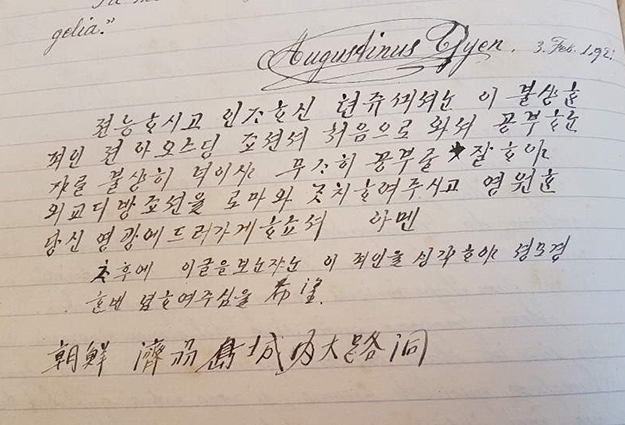 gelia."
Augustinus Tyen. 3. Feb. 192
젼능ᄒᆞ시고 인ᄌᆞᄒᆞ신 텬쥬셰셔는 이 불상ᄒᆞᆫ
죄인 젼아오스딩 조션셔 처음으로 와셔 공부ᄒᆞ는
쟈를 불상히 넉이샤 무ᄉᆞ히 공부를 잘ᄒᆞ야
외교디방 조션을 로마와 ᄀᆞᆺ치ᄒᆞ여주시고 영원ᄒᆞᆫ
당신 영광에 드러가게ᄒᆞ쇼셔 아멘
후에 이글을 보는쟈는 이 죄인을 ᄉᆡᆼ각ᄒᆞ야 셩모경
ᄒᆞᆫ번 념ᄒᆞ여주심을 希望.
朝鮮 濟州島城内大路洞